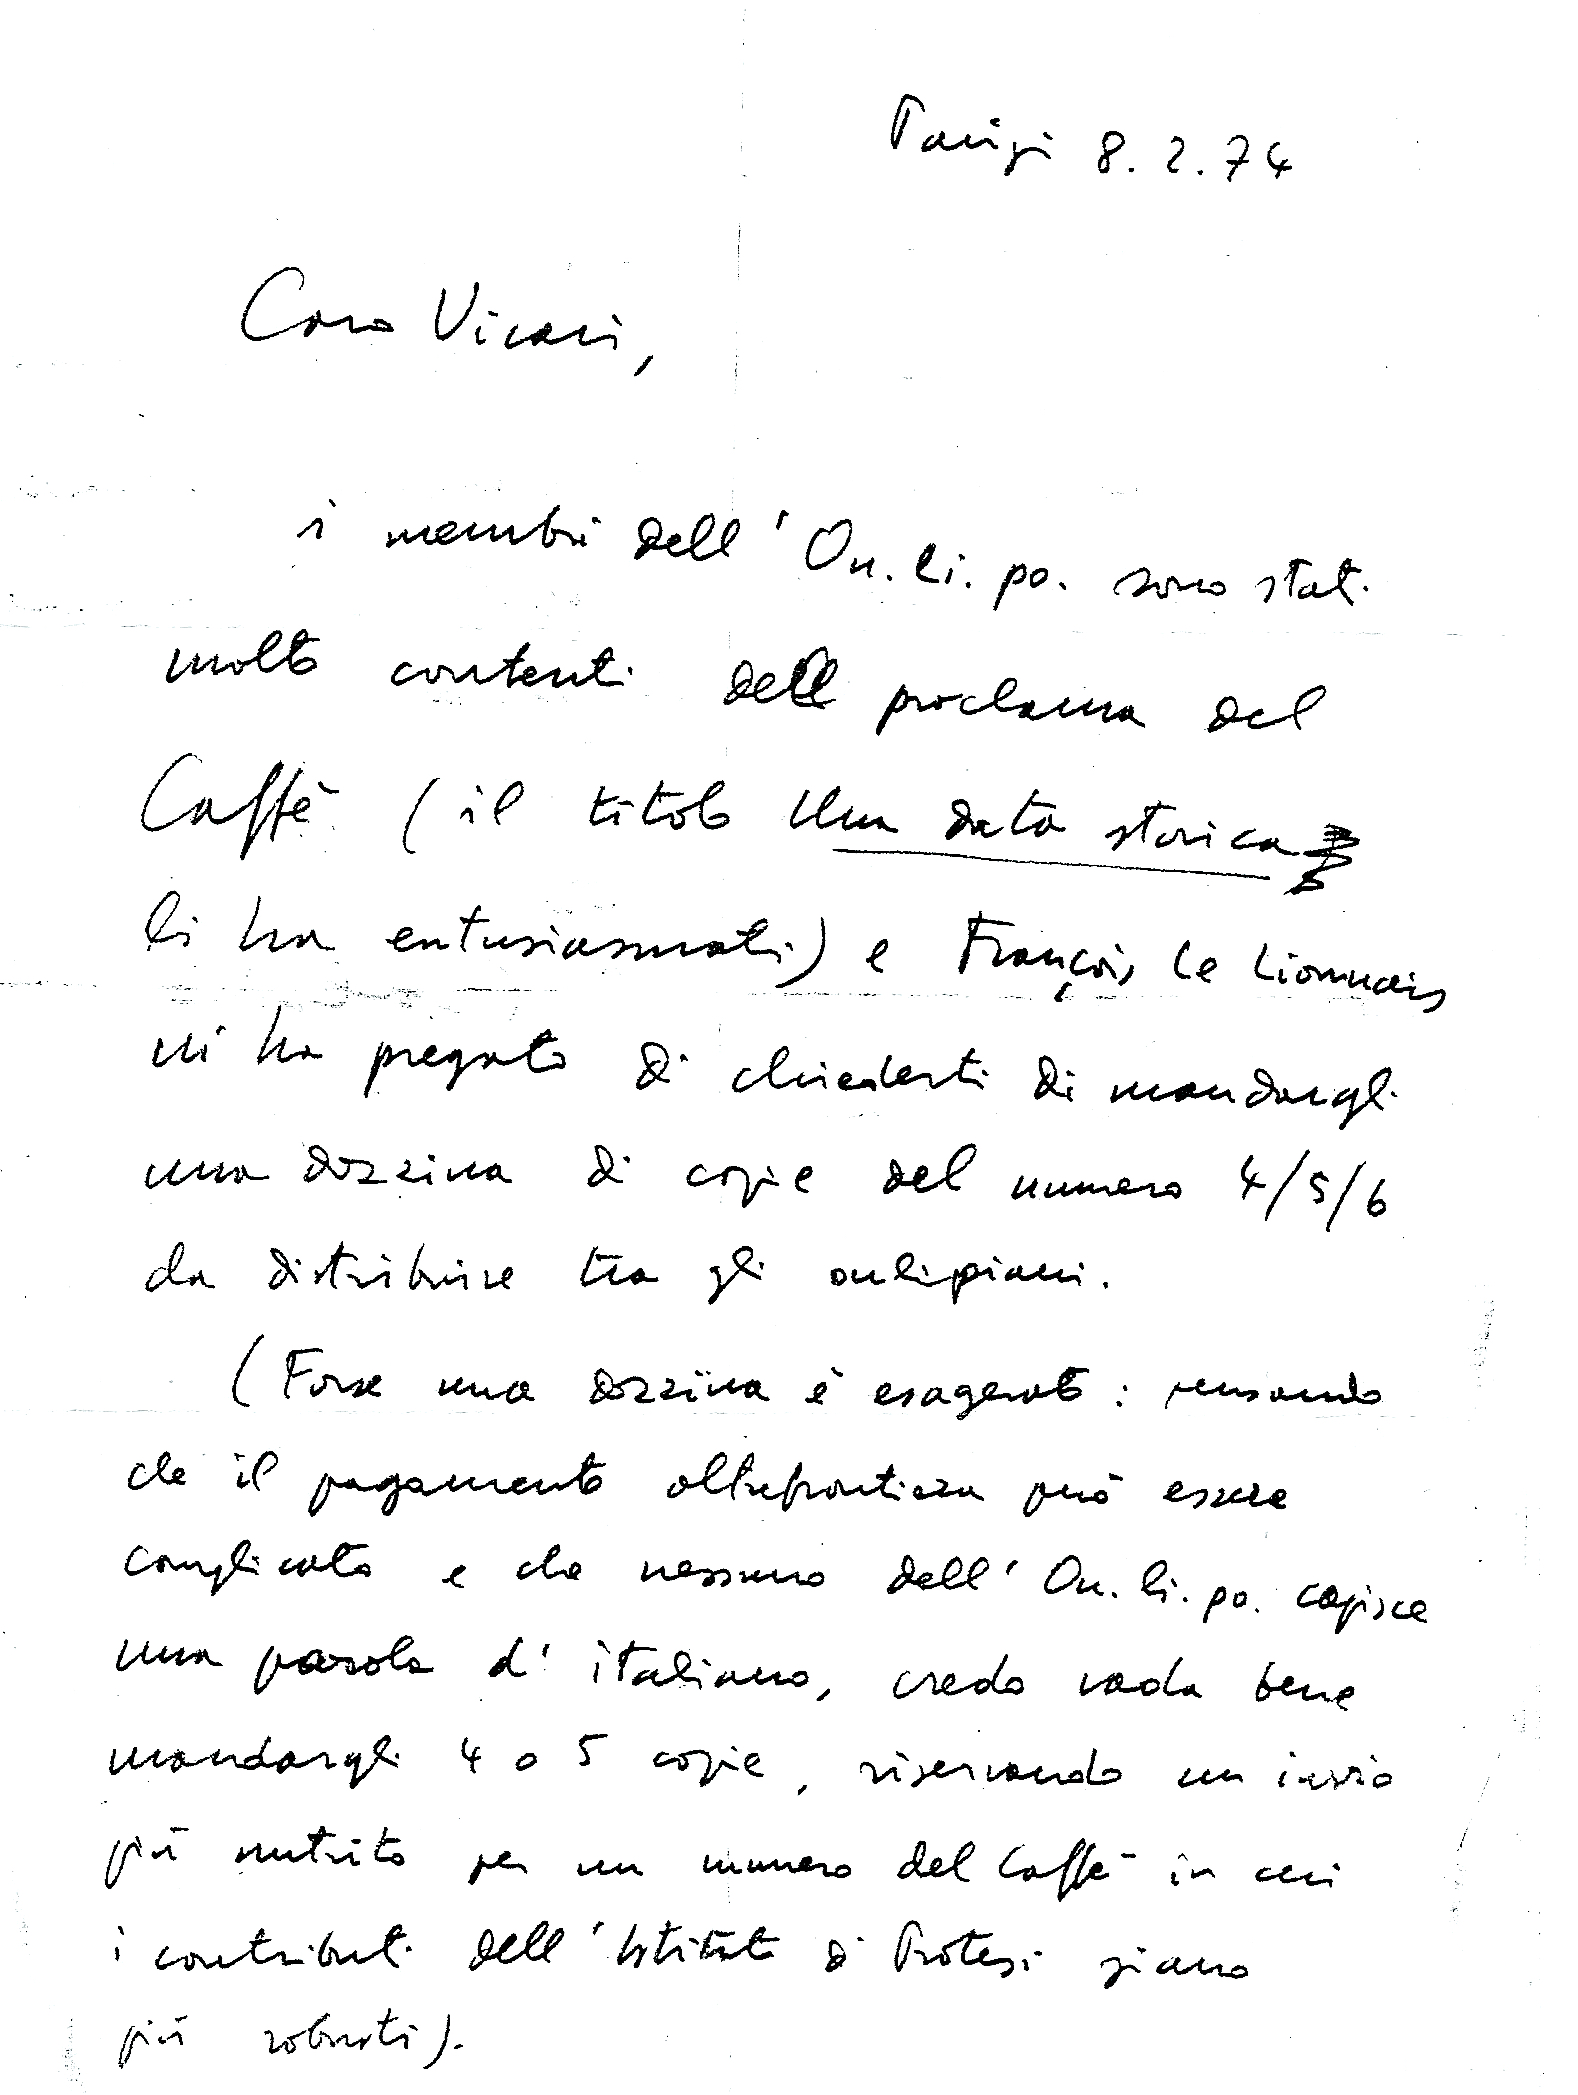 Parigi 8.2.74
Caro Vicari,
i membri dell'Ou.li.po. sono stati
molto contenti del proclama del
Caffè (il titolo Una data storica
li ha entusiasmati) e François Le Lionnais
mi ha pregato di chiederti di mandargli
una dozzina di copie del numero 4/5/6
da distribuire tra gli oulipiani.
(Forse una dozzina è esagerato: pensando
che il pagamento oltrefrontiera può essere
complicato e che nessuno dell'Ou.li.po. capisce
una parola d'italiano, credo vada bene
mandargli 4 o 5 copie, riservando un invio
più nutrito per un numero del Caffè in cui
i contributi dell'Istituto di Protesi siano
più robusti).